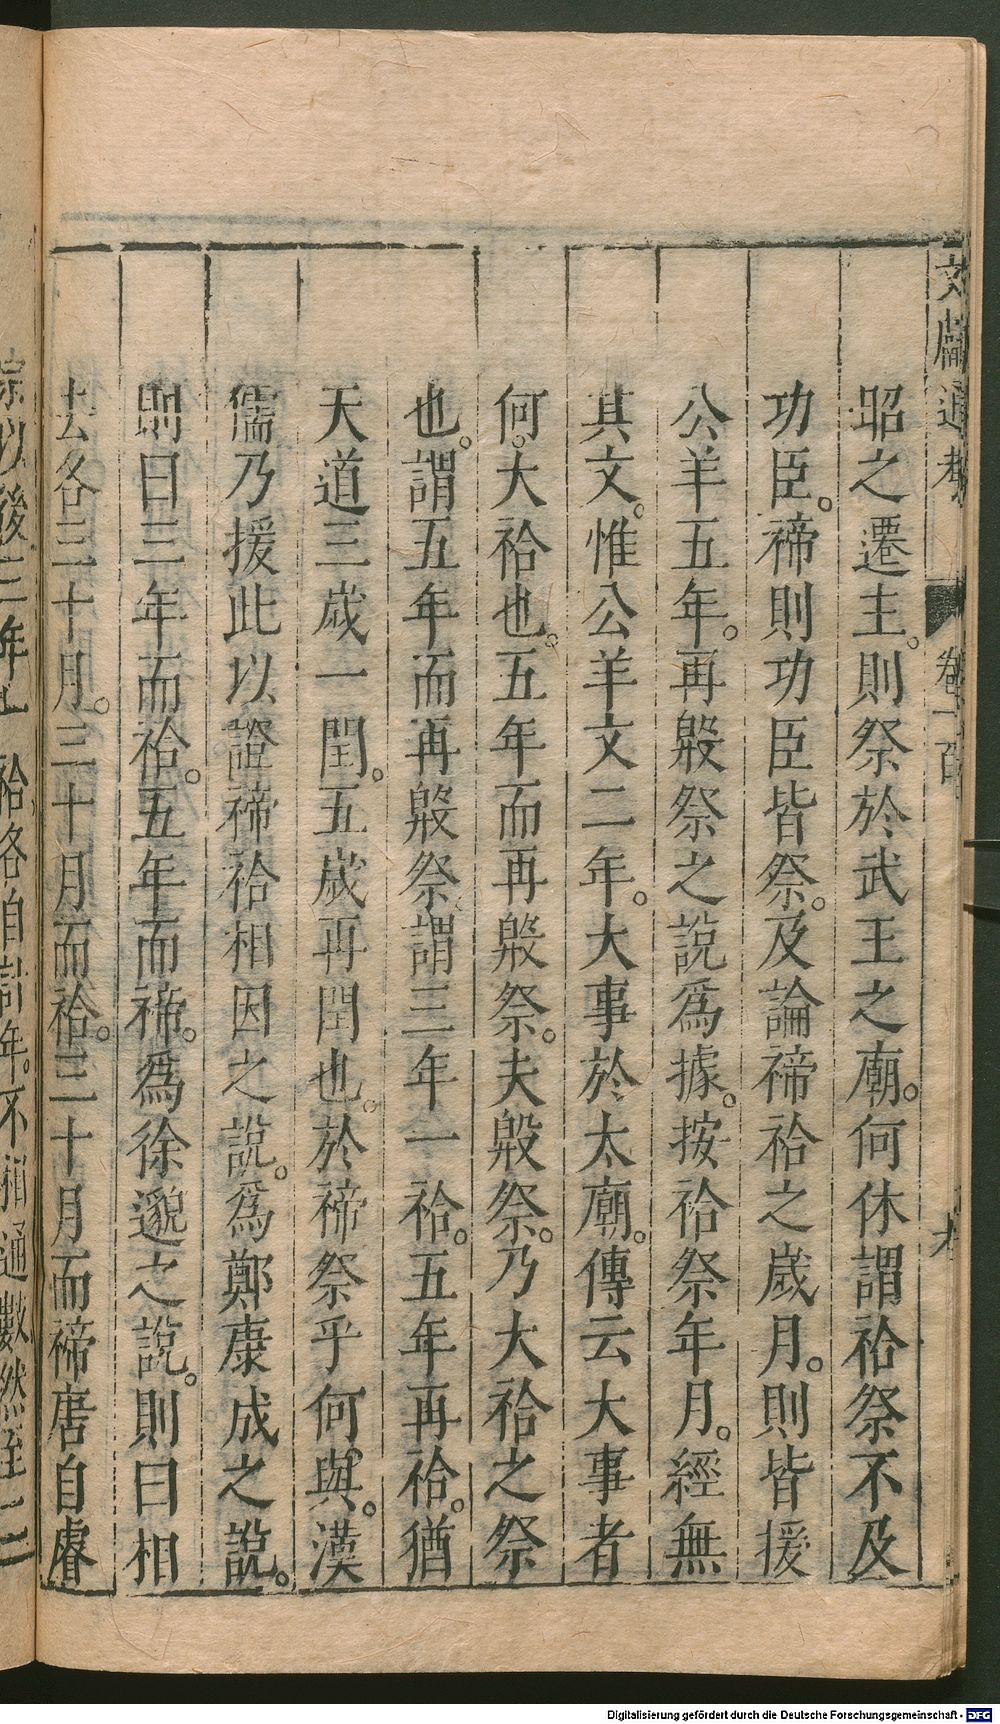 文獻通考 卷一百
昭之遷主。則祭於武王之廟。何休謂祫祭不及
功臣。禘則功臣皆祭。及論禘祫之歲月。則皆援
公羊五年。再殷祭之說爲據。按祫祭年月。經無
其文。惟公羊文二年。大事於太廟。傳云大事者
何。大祫也。五年而再殷祭。夫殷祭。乃大祫之祭
也。謂五年而再殷祭。謂三年一祫。五年再祫。猶
天道三歲一閏。五歲再閏也。於禘祭乎何與。漢
儒乃援此以證禘祫相因之說。爲鄭康成之說。
則曰三年而祫。五年而禘。爲徐邈之說。則曰相
去各三十月。三十月而祫。三十月而禘唐自睿
宗以後三年 祫各自計年。不相通數然至二
Digitalisierung gefördert durch die Deutsche Forschungsgemeinschaft - DFG